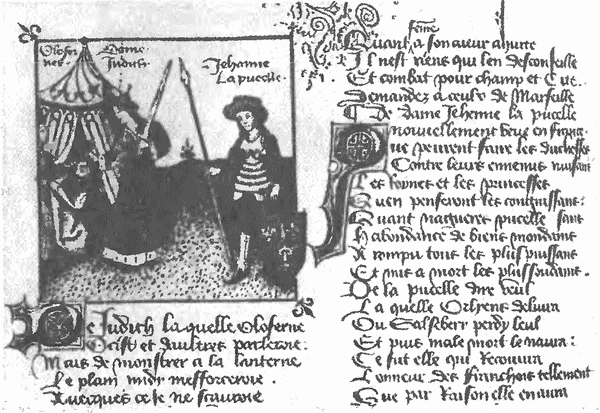 Olofer
nes.
Dame
Judith.
Jehanne
La pucelle.
De Judith la quelle Oloferne
Ocist et daultres parleroie
Mais de monstrer a la lanterne
Le plain midy mefforceroie.
Avecques ce Je ne scauroie
feme
Quant a son
Il nest riens qui len desconseille
Et combat pour champ et
Demandez a ceulx de Marseille
De dame Jehenne la pucelle
nouvellement veue en france
Que peuvent faire les duchesses
Contre leurs ennemis nuisant
Les roynes et les princesses
Quen penseront les
Quant nagueres pucelle sans
Habondance de biens mondans
A rompu tous les plus puissans
Et mis a mort les plus
De la pucelle dire veul
La quelle Orliens delivra
Ou Salseberi perdy leul
Et puis male mort le navra:
Ce fut elle qui Recouvra
Lonneur des franchois tellement
Que par Raison elle en aura